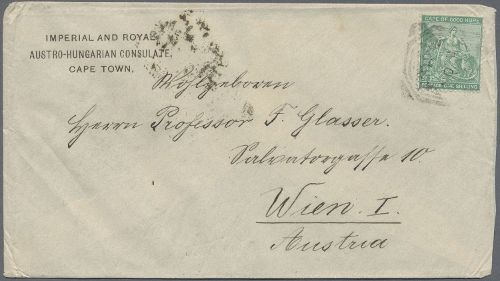 IMPERIAL AND ROYAL
AUSTRO-HUNGARIAN CONSULATE,
CAPE TOWN.
CAPE OF GOOD HOPE
ONE SHILLING
Wohlgeboren
Herrn Professor F. Glasser.
Salvatorgasse 10.
Wien. I.
Austria